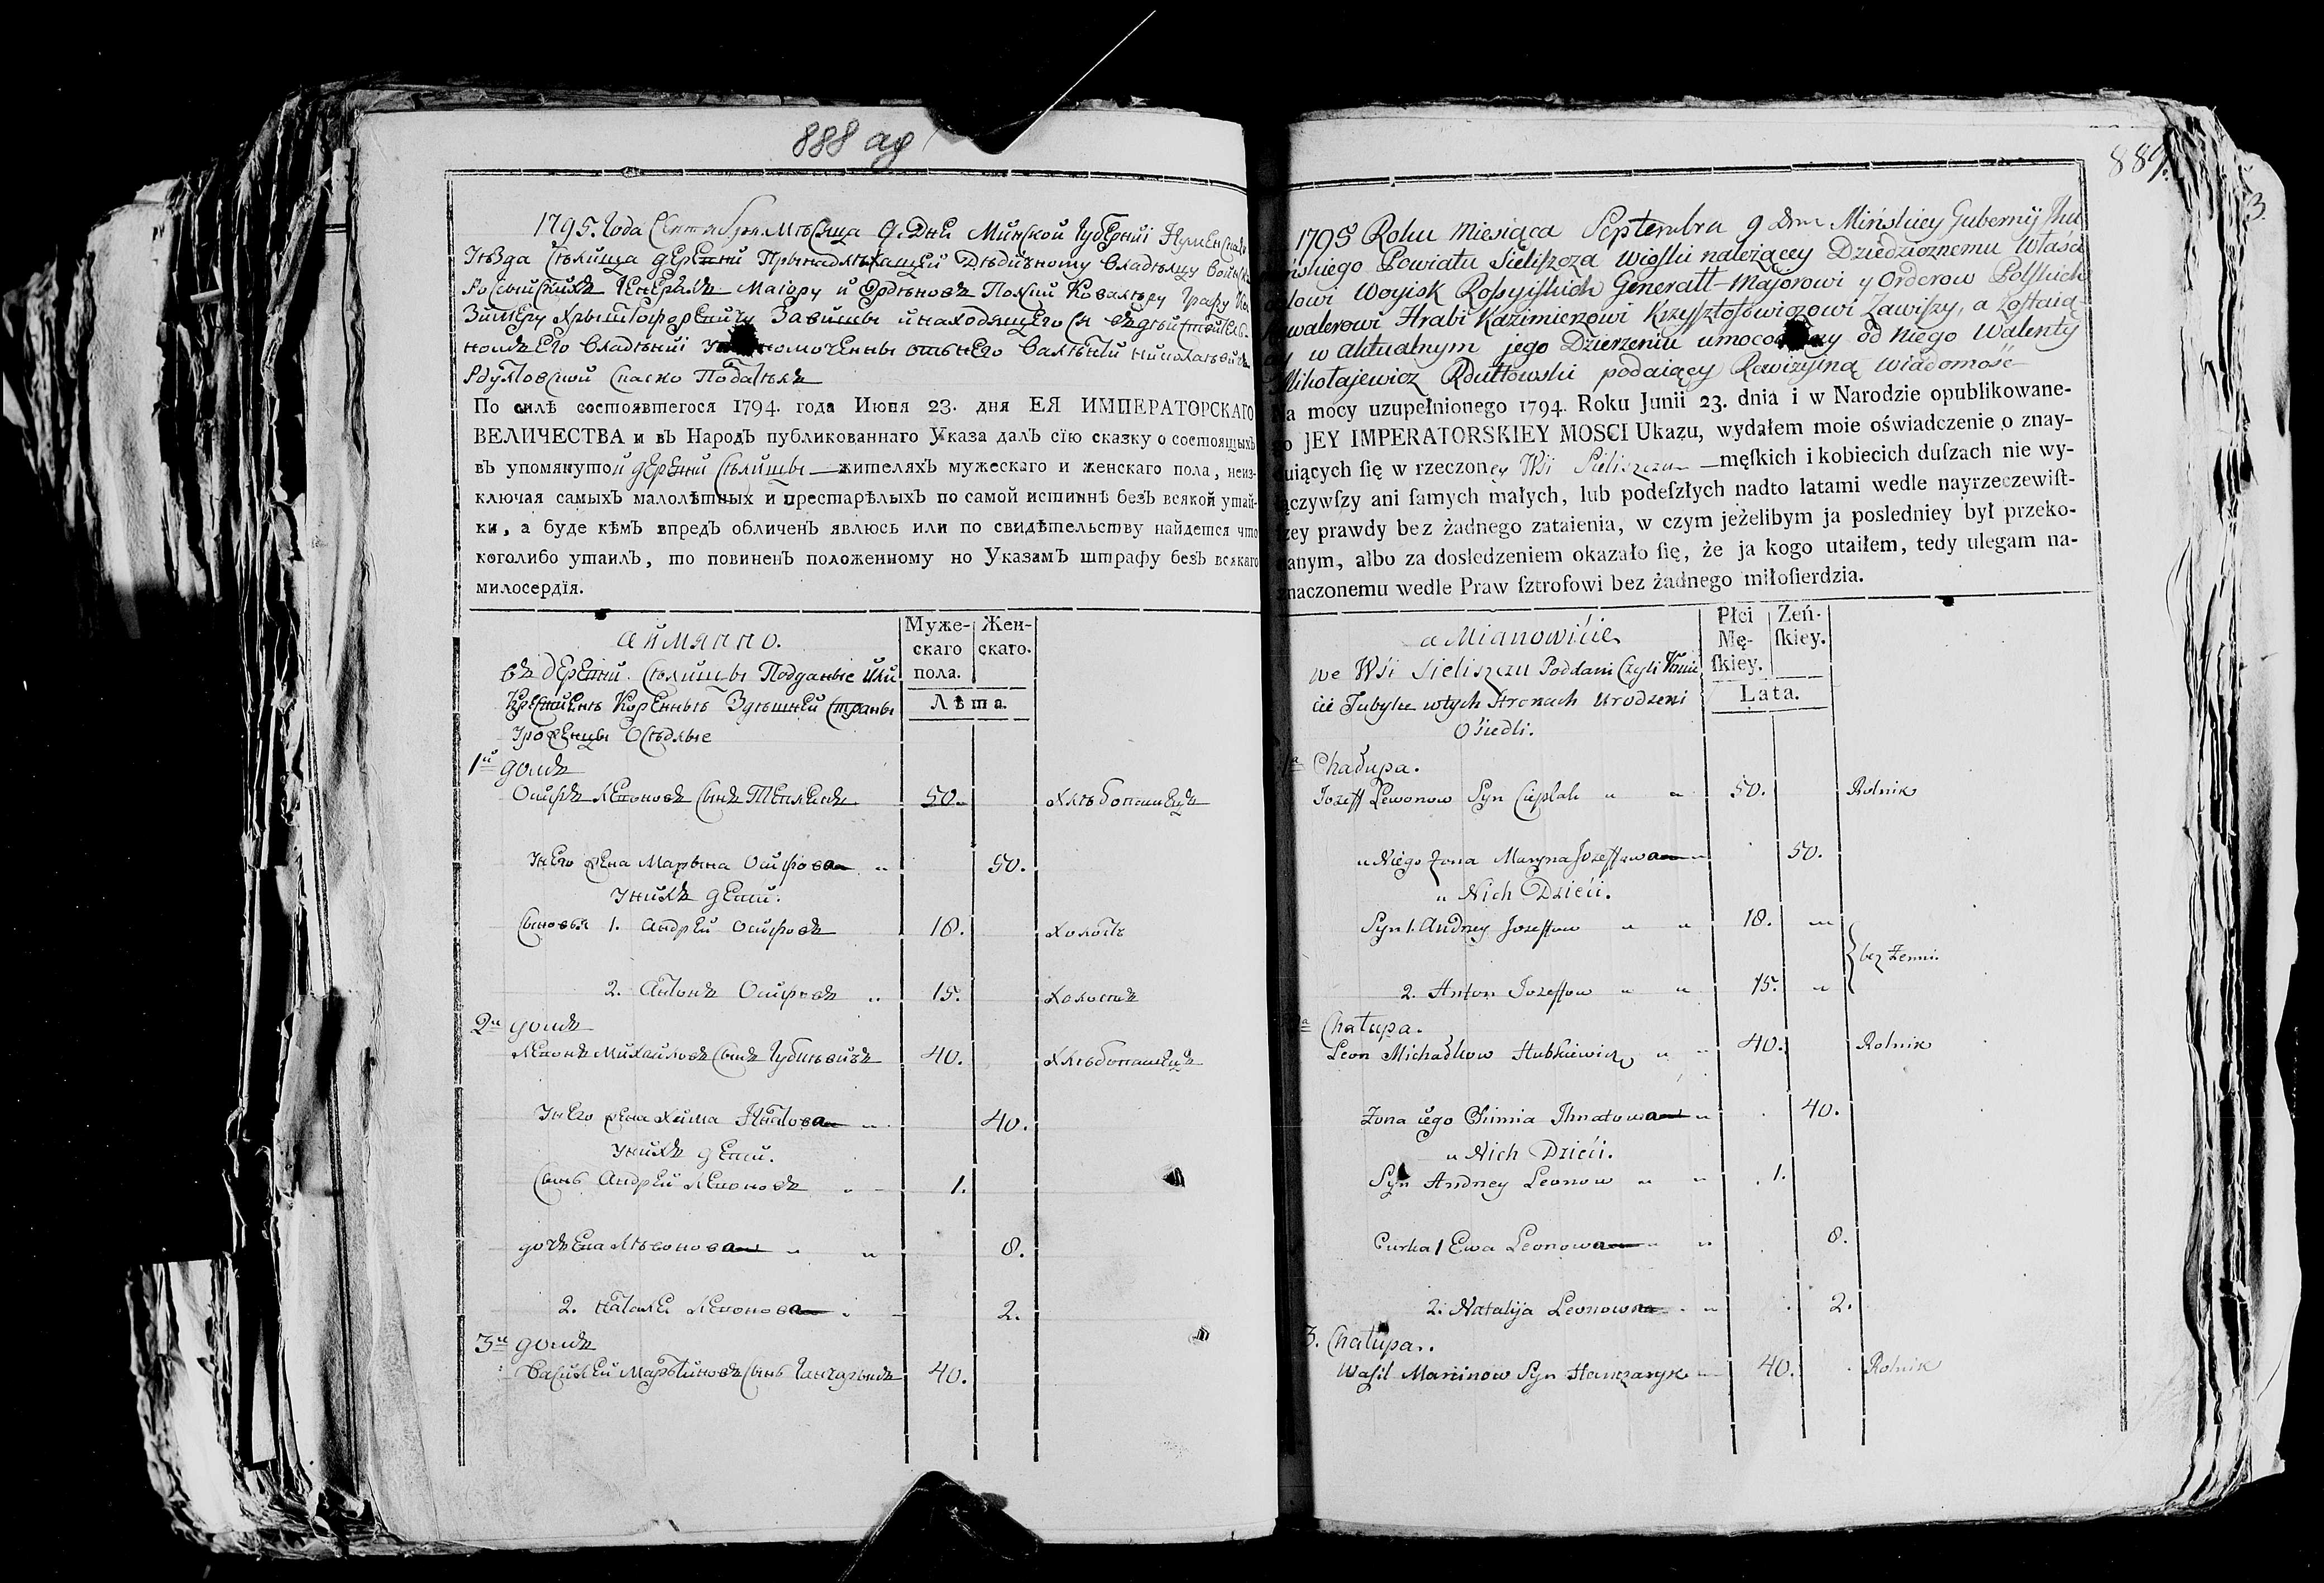 888 об
1795. Года Сентября Мѣсяца 9. Дня Минской Губернїи Игуменскаго
Уѣзда Сѣлища деревни Принадлежащей Дѣдичному Владѣльцу Войскъ
Россійскихъ Генералъ Маіору и Орденовъ Полскихъ Кавалеру Графу Ка
Зимеру Крыштофоровичу Завишы и находящегося въ дѣйстви
номъ Его владѣніи у номоченны отъ него Валентій Николаевичъ
Рдултовской Скаску Подалъ
По силѣ состоявшегося 1794. года Июня 23. дня ЕЯ ИМПЕРАТОРСКАГО
ВЕЛИЧЕСТВА и въ Народъ публикованнаго Указа далъ сїю сказку о состоящыхъ
въ упомянутой деревни Сѣлищы жителяхъ мужескаго и женскаго пола, неиз-
ключая самыхъ малолѣтныхъ и престарѣлыхъ по самой истиннѣ безъ всякой утай-
ки, а буде кѣмъ впредъ обличенъ явлюсь или по свидѣтельству найдется что
коголибо утаилъ, то повиненъ положенному но Указамъ штрафу безъ всякаго
милосердїя.
а имянно.
въ деревни Сѣлищы Подданые или
Крестьянѣ Коренныѣ Здѣшней страны
Уроженцы Осѣдлые
Муже-
скаго
пола.
Жен-
скаго.
Лѣта.
1й домъ
Осифъ Леоновъ сынъ Теплякъ 50 хлѣбопашецъ
У него жена Марына Осифова 50.
У нихъ дети.
Сыновья 1. Андрей Осифовъ 18. холостъ
2. Антонъ Осифовъ 15. холостъ
2й домъ
Леонъ Михайловъ сынъ Губкѣвичъ 40. хлѣбопашецъ
У него жена Хима Игнатова 40.
У нихъ дети.
Сынъ Андрей Леоновъ 1.
дочь Ева Лѣвонова 8.
2. Наталя Леонова 2.
3й домъ
Василей Мартиновъ сынъ Ганчарыкъ 40.
889.
3.
1795 Roku Miesiąca Septembra 9 dnia Mińskiey Gubernij Ihu
ńskiego Powiatu Sieliszcza wioski należącey Dziedzicznemu Właści
elowi Woyisk Rossyiskich Generall-Majorowi y Orderow Polskich
Kawalerowi Hrabi Kazimierzowi Krzysztofowiczowi Zawiszy, a Zostaią
cey w aktualnym jego Dzierżeniu umoco ny od niego Walenty
Mikołajewicz Rdułtowski podaiący Rewizyiną Wiadomość
Na mocy uzupełnionego 1794. Roku Junii 23. dnia i w Narodzie opublikowane-
go JEY IMPERATORSKIEY MOSCI Ukazu, wydałem moie oświadczenie o znay-
duiących ſię w rzeczoney Wśi Sieliszczu męſkich i kobiecich duſzach nie wy-
łączywſzy ani ſamych małych, lub podeſzłych nadto latami wedle nayrzeczewiſt-
ſzey prawdy bez żadnego zataienia, w czym jeżelibym ja posledniey był przeko-
nanym, albo za dosledzeniem okazało ſię, że ja kogo utaiłem, tedy ulegam na-
znaczonemu wedle Praw ſztrofowi bez żadnego miłoſierdzia.
a Mianowićie
we Wśi Sieliszczu Poddani Czyli Kmie
cie Tubylce wtych Stronach Urodzeni
Ośiedli.
Płci
Mę-
ſkiey.
Zeń-
ſkiey.
Lata.
1a Chałupa.
Jozeff Lewonow Syn Cieplak 50. Rolnik
u Niego Żona Maryna Jozeffowa 50.
u Nich Dzieći.
Syn 1. Andrzey Jozeffow 18.
bez Żenni.
2. Anton Jozeffow 15.
2a Chałupa.
Leon Michałkow Hubkiewicz 40. Rolnik
Żona iego Chimia Ihnatowa 40.
u Nich Dzieći.
Syn Andrzey Leonow 1.
Curka 1 Ewa Leonowa 8.
2. Natalija Leonowna 2.
3. Chałupa.
Wasil Marcinow Syn Hanczaryk 40. Rolnik